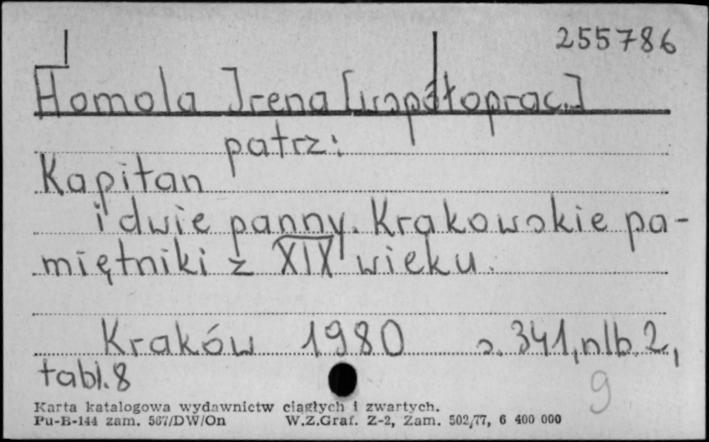 255786
Homola Irena [współoprac.]
patrz:
Kapitan
i dwie panny. Krakowskie pa-
miętniki z XIX wieku.
Kraków 1980 s. 341, nlb. 2,
tabl. 8
9
Karta katalogowa wydawnictw ciągłych i zwartych.
Pu-B-144 zam. 567/DW/On W.Z.Graf. Z-2, Zam. 502/77, 6 400 000